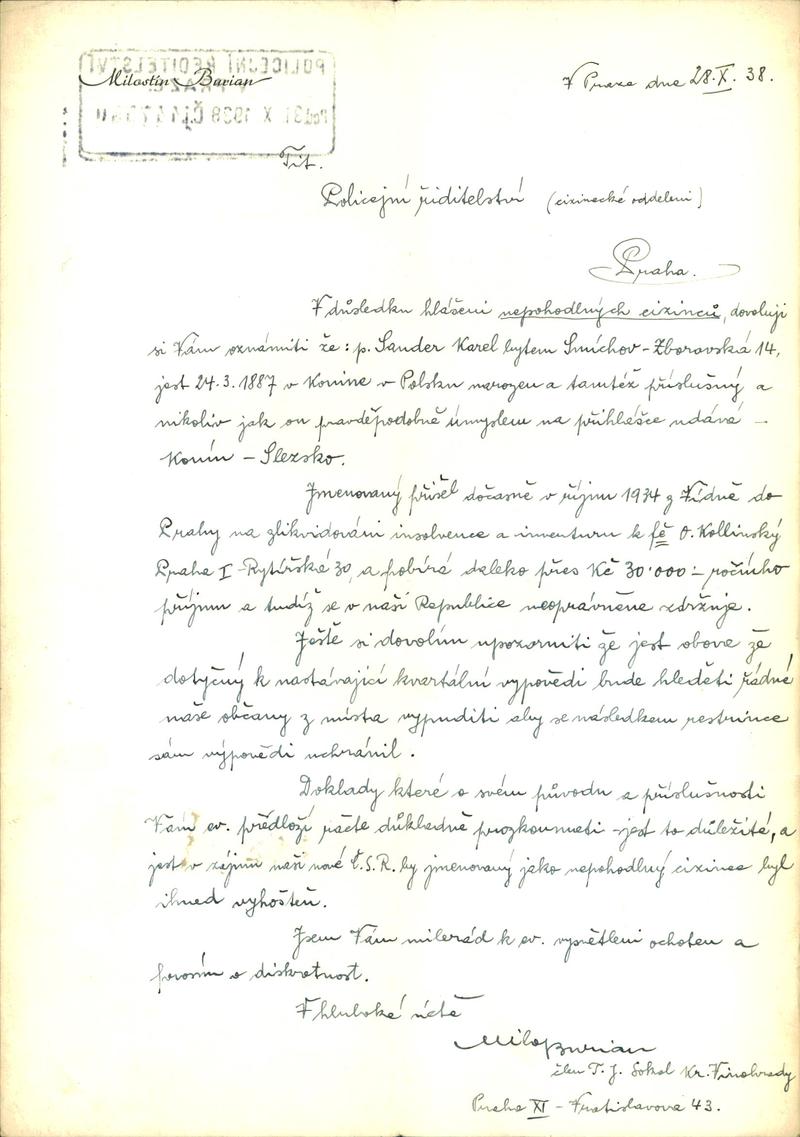 Milostín Burian
V Praze dne 28.X.38.
POLICEJNÍ ŘEDITELSTVÍ
V PRAZE
31 X 1938
Tit.
Policejní řiditelství (cizinecké oddeleni)
Praha.
V důsledku hlášeni nepohodlných cizinců, dovoluji
si Vám oznámiti že: p. Sander Karel bytem Smíchov - Zborovská 14,
jest 24.3.1887 v Konine v Polsku narozen a tamtéž příslušný a
nikoliv jak on pravděpodobně úmyslem na přihlášce udává -
Konín - Slezsko.
Jmenovaný přišel dočasně v říjnu 1934 z Vídně do
Prahy na zlikvidováni insolvence a inventuru k fě O. Kollinský
Praha I - Rytířská 30, a pobírá daleko přes Kč 30.000:- ročního
příjmu a tudíž se v naší Republice neoprávněne zdržuje.
Ještě si dovolím upozorniti že jest obava že
dotyčný k nastávající kvartální vypovědi bude hleděti řádné
naše občany z místa vypuditi aby se následkem restrince
sám výpovědi uchránil.
Doklady které o svém původu a příslušnosti
Vám ev. předloží račte důkladně prozkoumati - jest to důležité, a
jest v zájmu naší nové Č.S.R. by jmenovaný jako nepohodlný cizinec byl
ihned vyhoštěn.
Jsem Vám milerád k ev. vysvětleni ochoten a
porosím o diskretnost.
V hluboké úctě
Milo Burian
člen T. J. Sokol Kr. Vinohrady
Praha XI - Vratislavova 43.